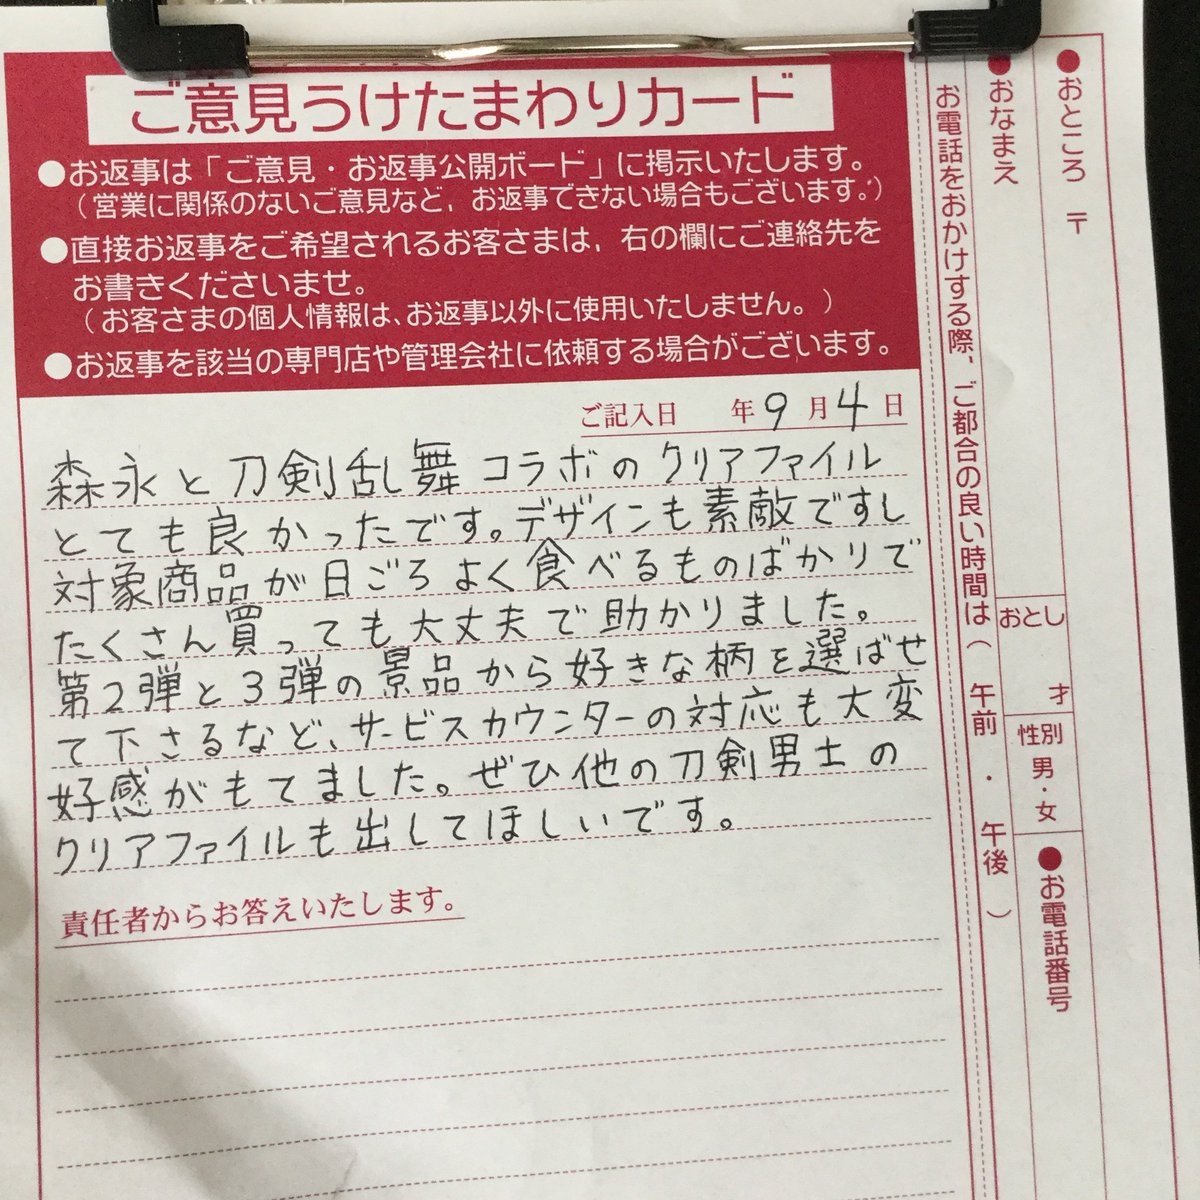 ご意見うけたまわりカード
●お返事は「ご意見・お返事公開ボード」に掲示いたします。
（営業に関係のないご意見など、お返事できない場合もございます。）
●直接お返事をご希望されるお客さまは、右の欄にご連絡先を
お書きくださいませ。
（お客さまの個人情報は、お返事以外に使用いたしません。）
●お返事を該当の専門店や管理会社に依頼する場合がございます。
ご記入日　年9月4日
森永と刀剣乱舞コラボのクリアファイル
とても良かったです。デザインも素敵ですし
対象商品が日ごろよく食べるものばかりで
たくさん買っても大丈夫で助かりました。
第2弾と3弾の景品から好きな柄を選ばせ
て下さるなど、サービスカウンターの対応も大変
好感がもてました。ぜひ他の刀剣男士の
クリアファイルも出してほしいです。
責任者からお答えいたします。
●おところ 〒
●おなまえ
おとし
才
性別
男・女
●お電話番号
お電話をおかけする際、ご都合の良い時間は（ 午前 ・ 午後 ）